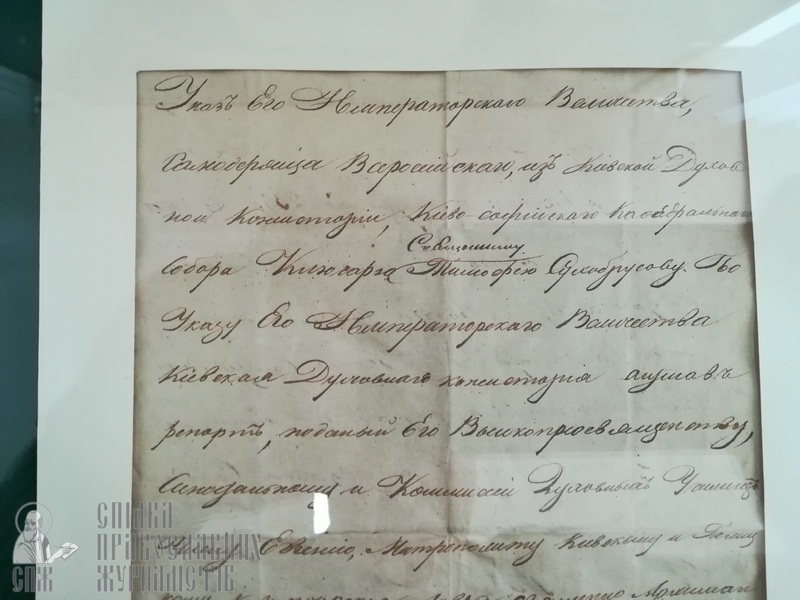 Указъ Его Императорскаго Величества,
Самодержца Всероссійскаго, изъ Кіевской Духов
ной Консисторіи, Кіево-Софійскаго Каѳедральнаго
Священнику
Собора Ключарю Тимофею Сухобрусову. По
Указу Его Императорскаго Величества
Кіевская Духовная консисторія слушавъ
репортъ, поданый Его Высокопреосвященству,
Синодальному и Коммисіи Духовныхъ Училищъ
Члену Евгенію, Митрополиту Кіевскому и Галиц
СПІЛКА
ПРАВОСЛАВНИХ
ЖУРНАЛІСТІВ
СПЖ